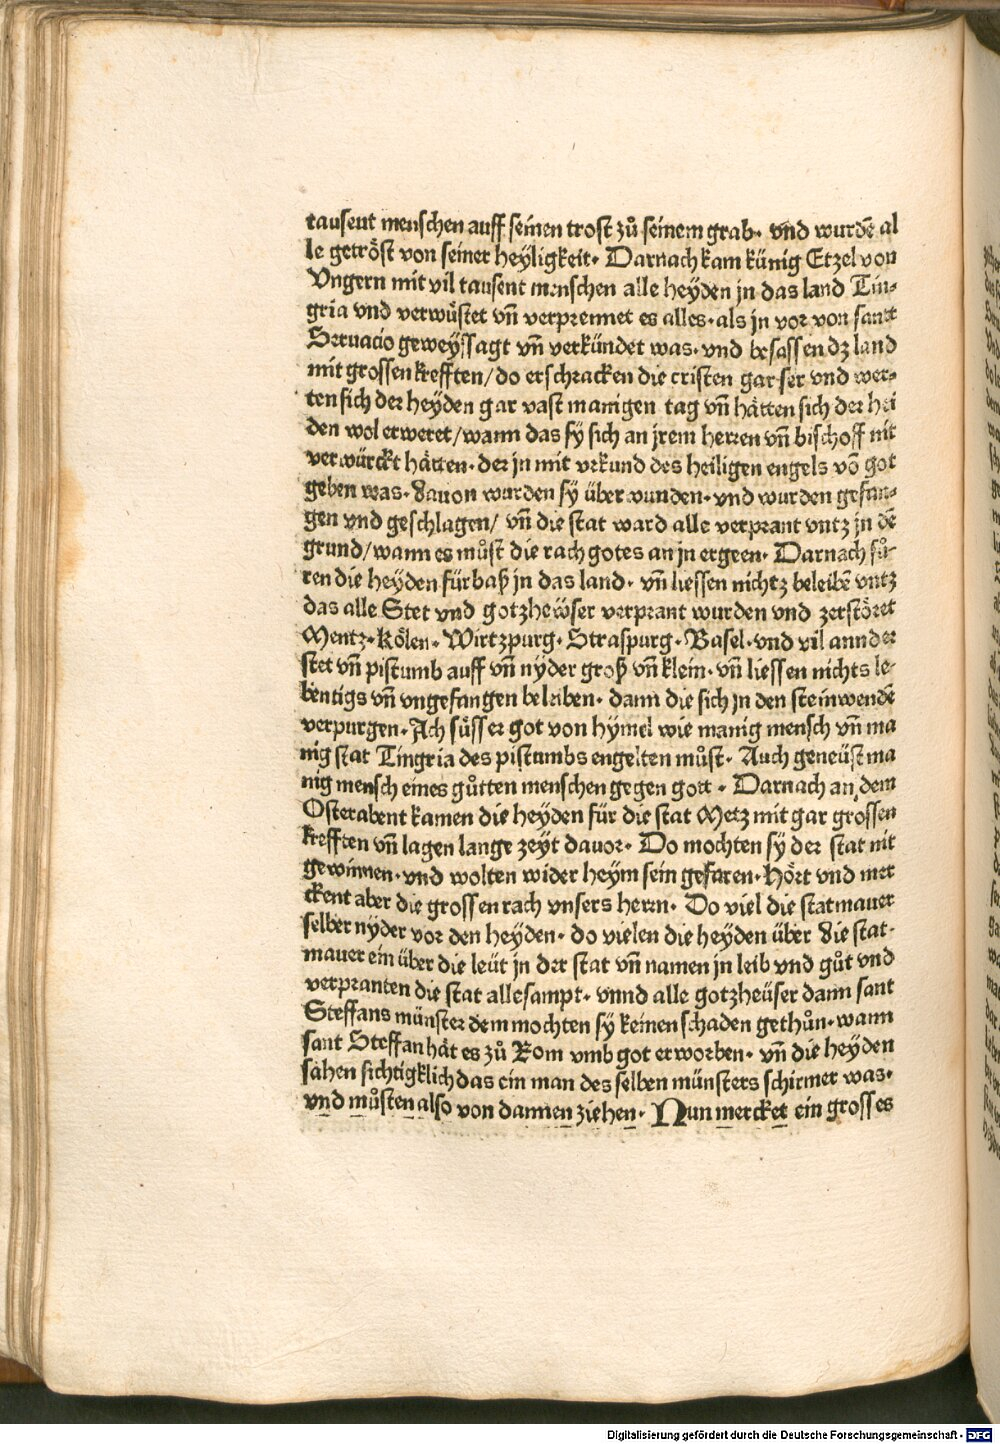 tausent menschen auff seinen trost zů seinem grab· vnd wurdē al
le getröst von seiner heyligkeit· Darnach kam künig Etzel von
Vngern mit vil tausent menschen alle heyden in das land Tin⸗
gria vnd verwůstet vñ verprennet es alles·als jn vor von sant
Seruacio geweyssagt vñ verkündet was·vnd besassen dz land
mit grossen krefften/do erschracken die cristen gar ser vnd wer⸗
ten sich der heyden gar vast manigen tag vñ hätten sich der hei
den wol erweret/wann das sy sich an jrem herren vñ bischoff nit
verwürckt hätten·der jn mit vrkund des heiligen engels võ got
geben was·dauon wurden sy über wunden·vnd wurden gefan⸗
gen vnd geschlagen/ vñ die stat ward alle verprant vntz jn dē
grund/wann es můst die rach gotes an jn ergeen· Darnach fů⸗
ren die heyden fürbaß jn das land· vñ liessen nichtz beleibē vntz
das alle Stet vnd gotzheüser verprant wurden vnd zerstöret
Mentz·Kölen·Wirtzpurg·Straspurg·Basel·vnd vil annder
stet vñ pistumb auff vñ nyder groß vñ klein·vñ liessen nichts le⸗
bentigs vñ vngefangen beleiben· dann die sich jn den steinwendē
verpurgen·Ach süsser got von hymel wie manig mensch vñ ma
nig stat Tingria des pistumbs engelten můst· Auch geneüst ma
nig mensch eines gůtten menschen gegen gott· Darnach an dem
Osterabent kamen die heyden für die stat Metz mit gar grossen
krefften vñ lagen lange zeyt dauor· Do mochten sy der stat nit
gewinnen·vnd wolten wider heym sein gefaren·Hört vnd mer
ckent aber die grossen rach vnsers herrn· Do viel die statmauer
selber nyder vor den heyden· do vielen die heyden über die stat⸗
mauer ein über die leüt jn der stat vñ namen jn leib vnd gůt vnd
verpranten die stat allesampt· vnnd alle gotzheüser dann sant
Steffans münster dem mochten sy keinen schaden gethůn·wann
sant Steffan hät es zů Rom vmb got erworben· vñ die heyden
sahen sichtigklich das ein man des selben münsters schirmer was·
vnd můsten also von dannen ziehen· Nun mercket ein grosses
Digitalisierung gefördert durch die Deutsche Forschungsgemeinschaft - DFG